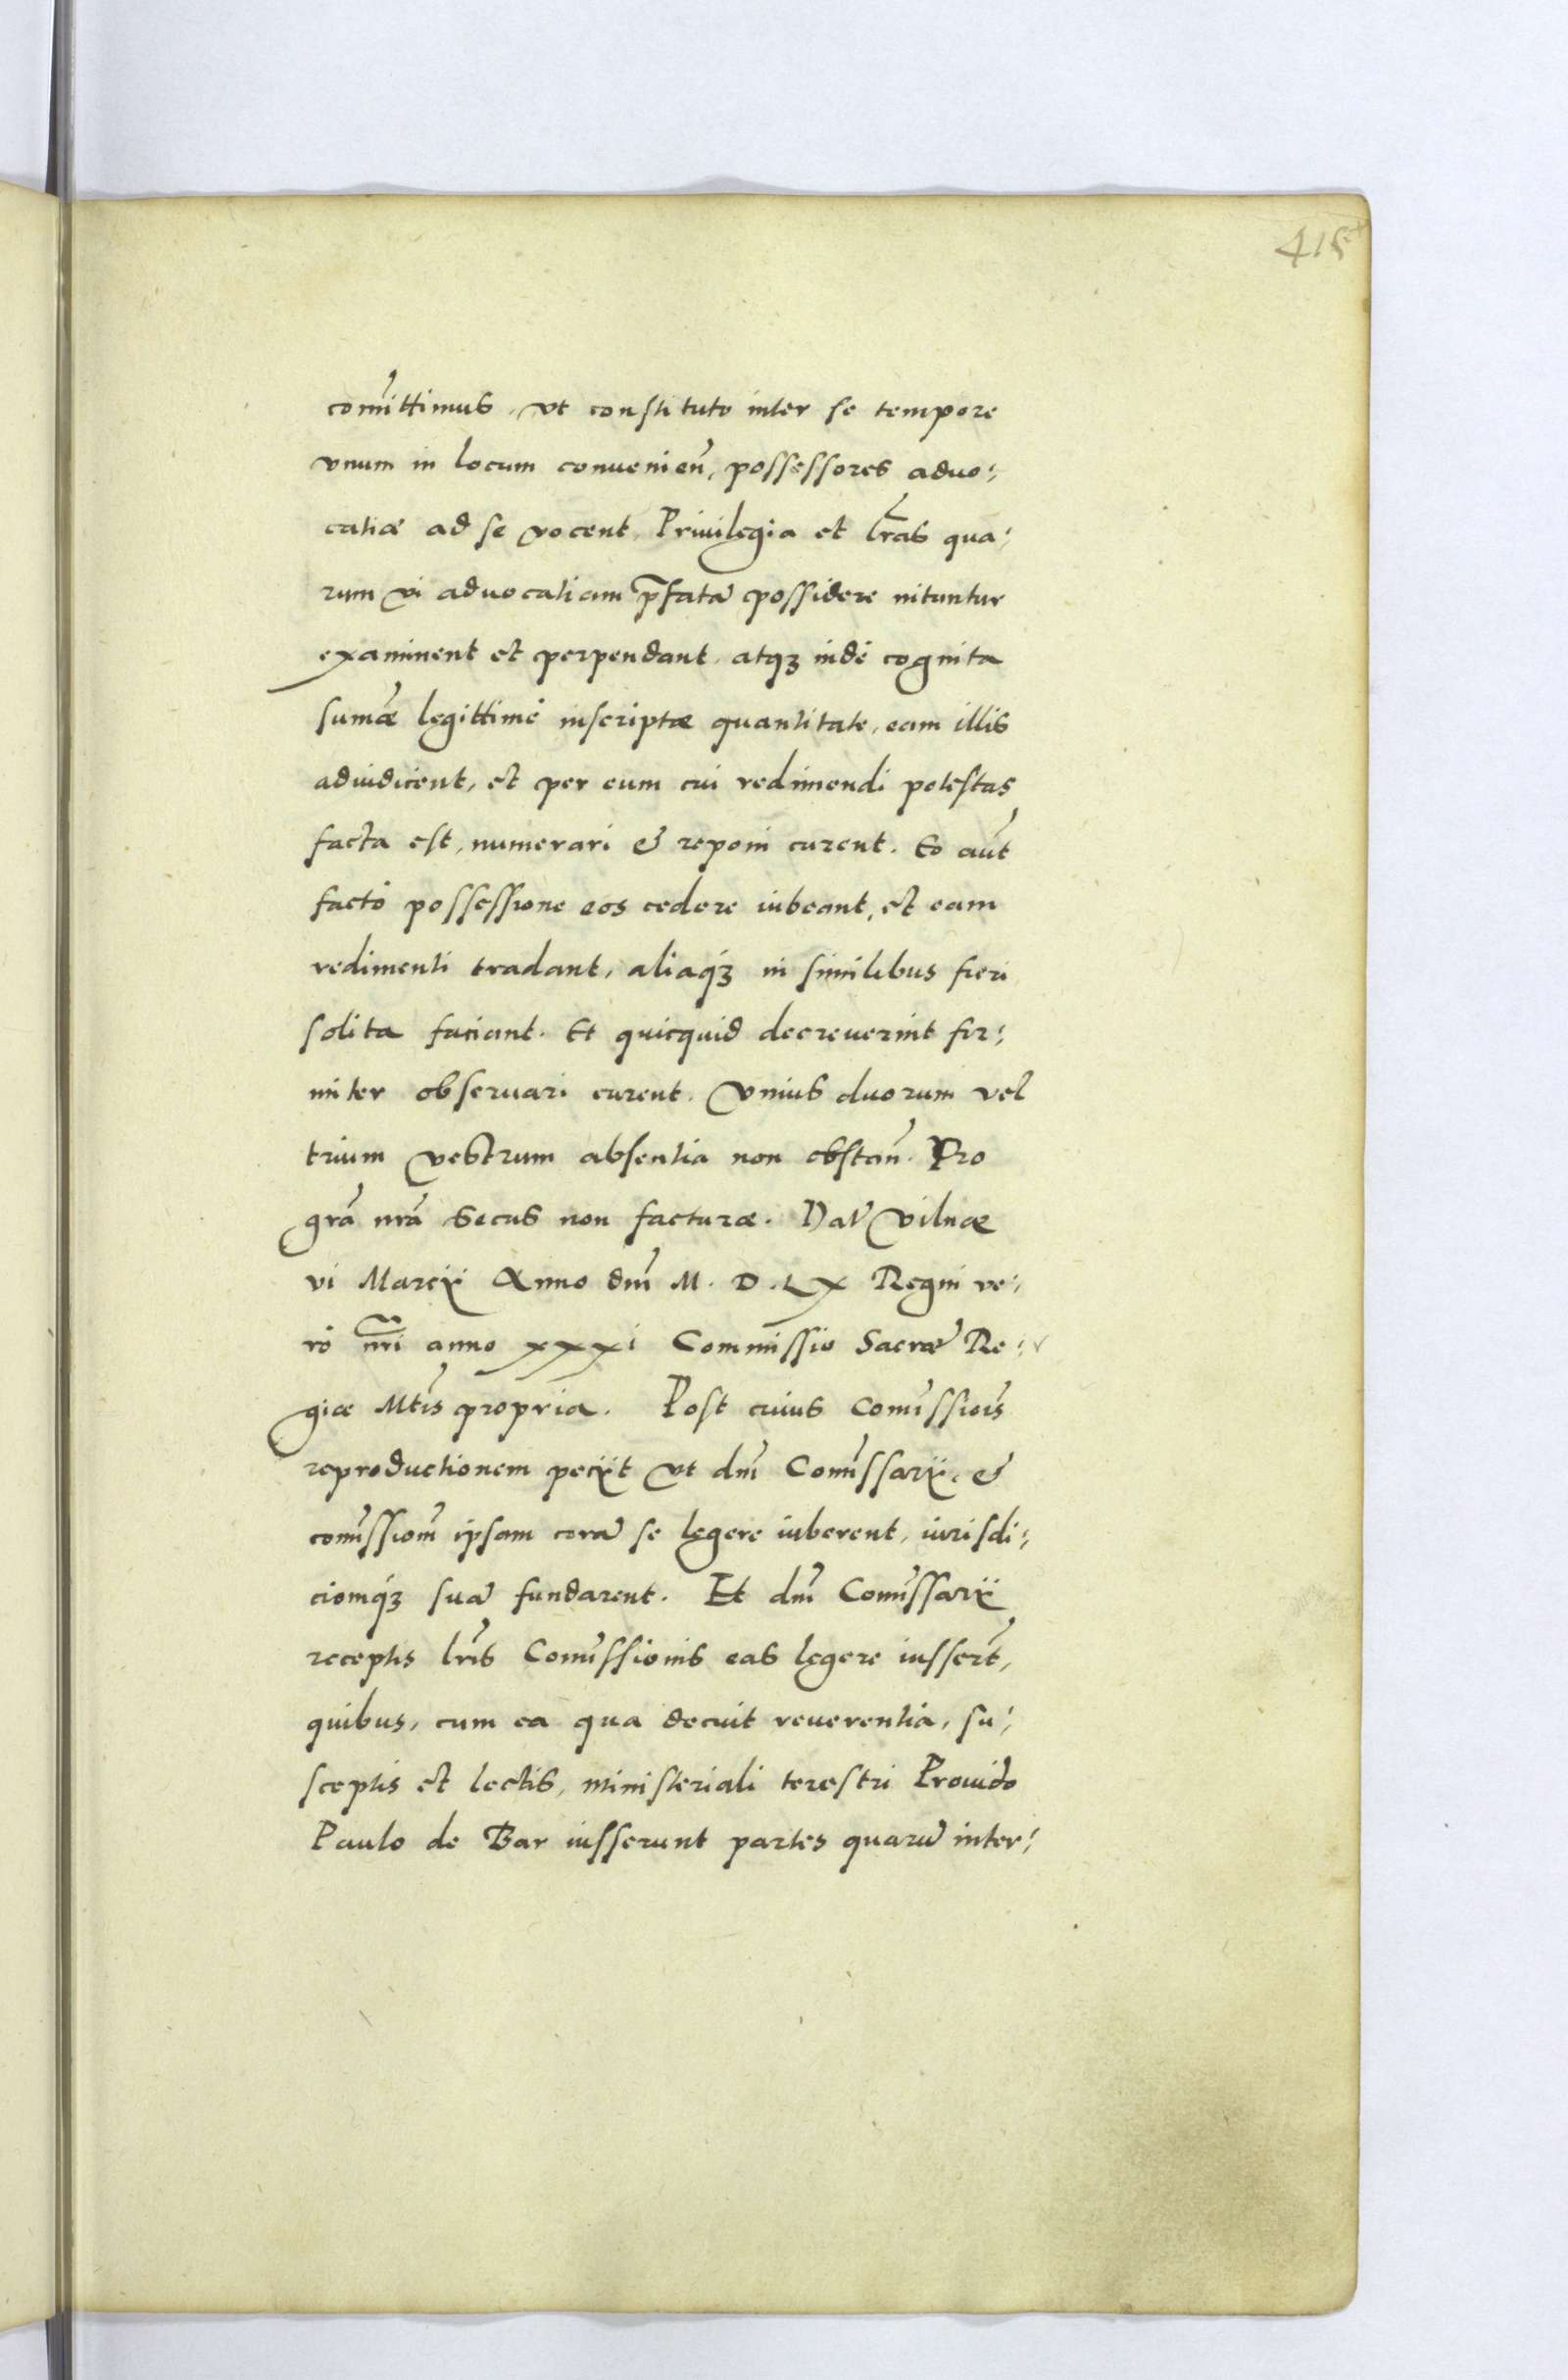 415
com̃ittimus, vt constituto inter se tempore
vnum in locum conueniẽn, possessores aduo:
catiæ ad se vocent, Priuilegia et l̃ras qua:
rum vi aduocatiam p̃fatã possidere nituntur
examinent et perpendant, atqꝫ indè cognita
sum̃æ legittimè inscriptæ quantitate, eam illis
adiudicent, et per eum cui redimendi potestas
facta est, numerari & reponi curent. Eo aũt
facto possessione eos cedere iubeant, et eam
redimenti tradant, aliaqꝫ in similibus fieri
solita faciant. Et quicquid decreuerint fir:
miter obseruari curent. Vnius duorum vel
trium vestrum absentia non obstañ. Pro
grã nrã secus non facturæ. Dat̃ Vilnæ
vi Marcij Anno dñi M. D. LX Regni ve:
rò nr̃i anno xxxi Commissio Sacræ Re:
giæ Mt̃is propria. Post cuius Com̃issiõis
reproductionem pecijt vt dñi Com̃issarij, &
com̃issionẽ ipsam corã se legere iuberent, iurisdi:
cionẽqꝫ suã fundarent. Et dñi Com̃issarij
receptis lr̃is Com̃issionis eas legere iusser̃t,
quibus, cum ea qua decuit reuerentia, su:
sceptis et lectis, ministeriali terestri Prouido
Paulo de Bar iusserunt partes quarũ inter: